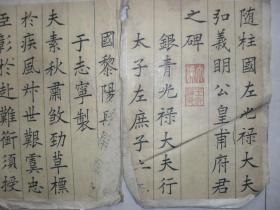 隨柱國左光祿大夫
弘義明公皇甫府君
之碑
銀青光祿大夫行
太子左庶子上
國黎陽
于志寧製
夫素秋肅煞勁草標
於疾風叔世艱虞忠
臣彰於赴難銜須授